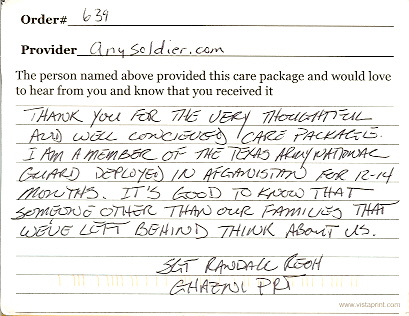 Order# 639
Provider anysoldier.com
The person named above provided this care package and would love
to hear from you and know that you received it
THANK YOU FOR THE VERY THOUGHTFUL
AND WELL CONCIEVED CARE PACKAGE.
I AM A MEMBER OF THE TEXAS ARMY NATIONAL
GUARD DEPLOYED IN AFGANISTAN FOR 12-14
MONTHS. IT'S GOOD TO KNOW THAT
SOMEONE OTHER THAN OUR FAMILIES THAT
WE'VE LEFT BEHIND THINK ABOUT US.
SGT RANDALL REOH
GHAZNI PRT
www.vistaprint.com